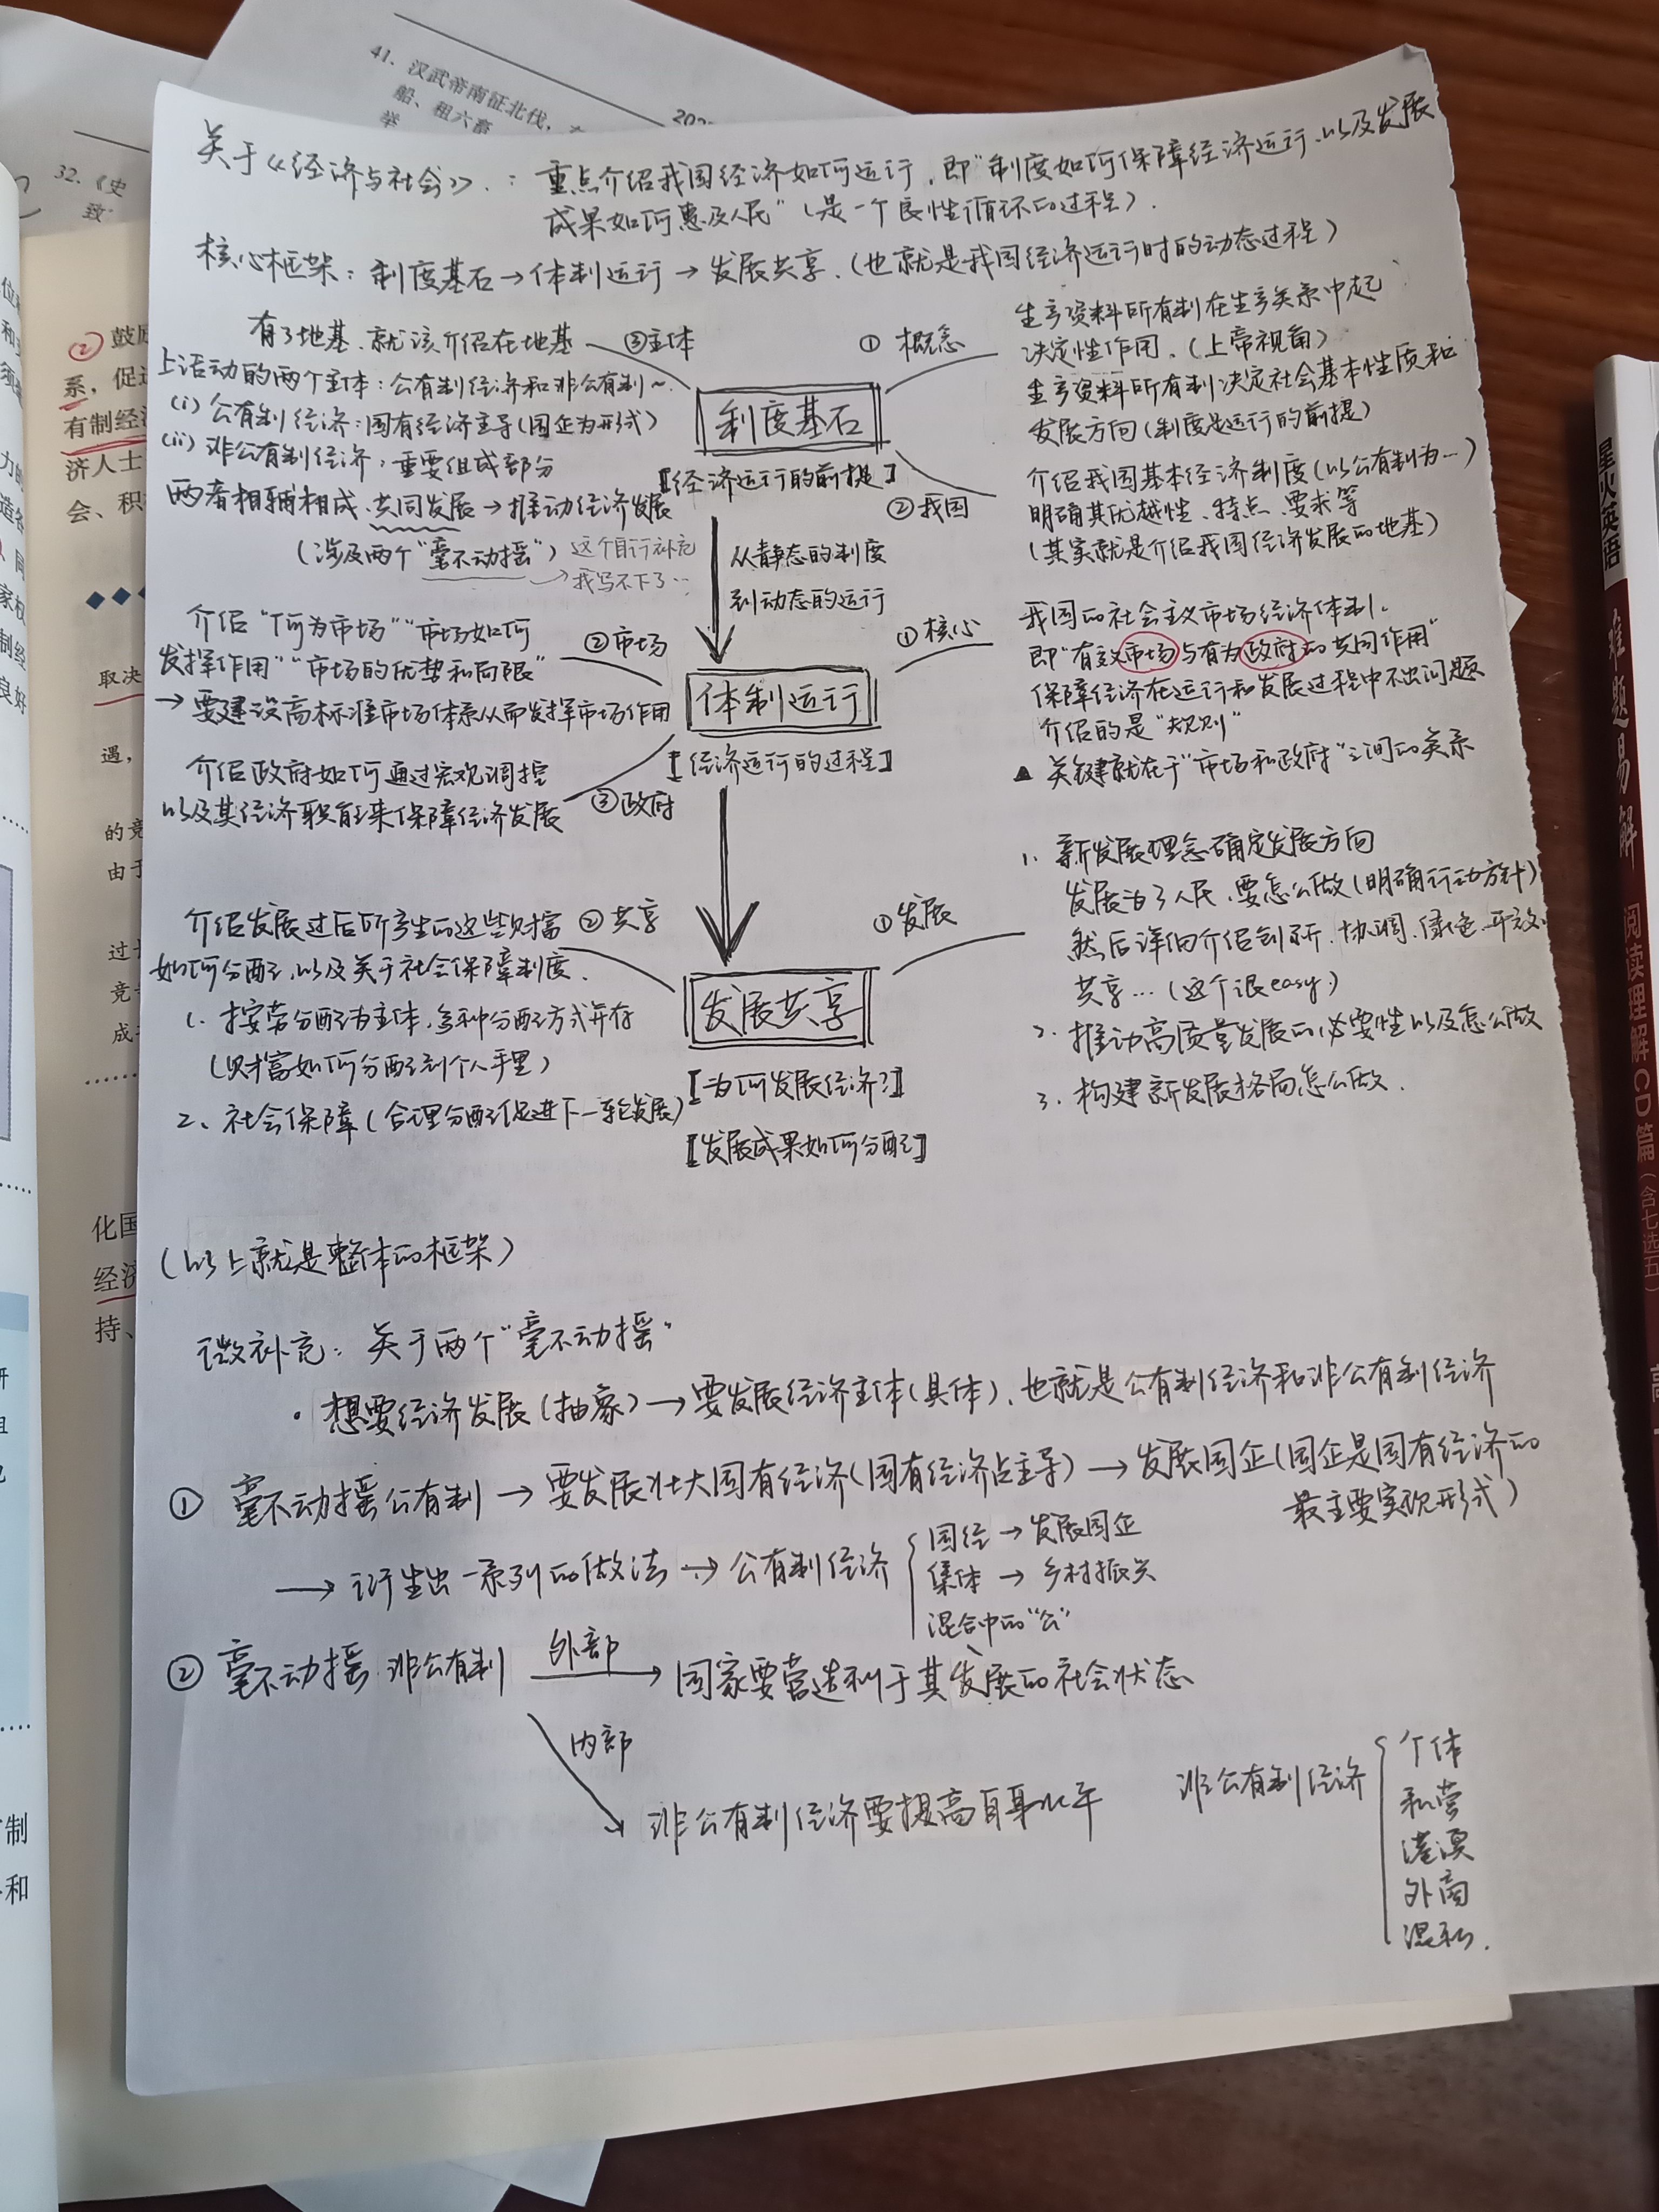 关于《经济与社会》：重点介绍我国经济如何运行，即"制度如何保障经济运行，以及发展
成果如何惠及人民"（是一个良性循环的过程）.
核心框架：制度基石→体制运行→发展共享.（也就是我国经济运行时的动态过程）
有了地基，就该介绍在地基
上活动的两个主体：公有制经济和非公有制~.
(i) 公有制经济：国有经济主导（国企为形式）
(ii) 非公有制经济，重要组成部分
两者相辅相成、共同发展→推动经济发展
（涉及两个"毫不动摇"）
这个自行补充
我写不下了…
③主体
① 概念
生产资料所有制在生产关系中起
决定性作用.（上帝视角）
生产资料所有制决定社会基本性质和
发展方向（制度是运行的前提）
制度基石
【经济运行的前提】
②我国
介绍我国基本经济制度（以公有制为…）
明确其优越性、特点、要求等
（其实就是介绍我国经济发展的地基）
从静态的制度
到动态的运行
介绍"何为市场""市场如何
发挥作用""市场的优势和局限"
→要建设高标准市场体系从而发挥市场作用
②市场
①核心
我国的社会主义市场经济体制.
即"有效市场与有为政府的共同作用"
保障经济在运行和发展过程中不出问题
介绍的是"规则"
▲ 关键就在于"市场和政府"之间的关系
体制运行
【经济运行的过程】
介绍政府如何通过宏观调控
以及其经济职能来保障经济发展
③政府
介绍发展过后所产生的这些财富
如何分配，以及关于社会保障制度.
1. 按劳分配为主体，多种分配方式并存
（财富如何分配到个人手里）
2、社会保障（合理分配促进下一轮发展）
②共享
①发展
1. 新发展理念确定发展方向
发展为了人民，要怎么做（明确行动方针）
然后详细介绍创新、协调、绿色、开放、
共享…（这个很easy.）
2. 推动高质量发展的必要性以及怎么做
3. 构建新发展格局怎么做.
发展共享
【为何发展经济？】
【发展成果如何分配】
（以上就是整体的框架）
微补充：关于两个"毫不动摇"
· 想要经济发展（抽象）→要发展经济主体（具体），也就是公有制经济和非公有制经济
① 毫不动摇公有制→要发展壮大国有经济（国有经济占主导）→发展国企（国企是国有经济的
最主要实现形式）
→衍生出一系列的做法→公有制经济
国经→发展国企
集体→乡村振兴
混合中的"公"
② 毫不动摇非公有制
外部
国家要营造利于其发展的社会状态
内部
非公有制经济要提高自身水平
非公有制经济
个体
私营
港澳
外商
混私.
41. 汉武帝南征北伐，
船、租六畜
举
202
32.《史
致
② 鼓励
系，促进
有制经济
济人士
会、积
取决
遇，
的竞
由于
过
竞
成
化国
经济
持、
制
和
星火英语
难题易解
阅读理解CD篇
（含七选五）
高